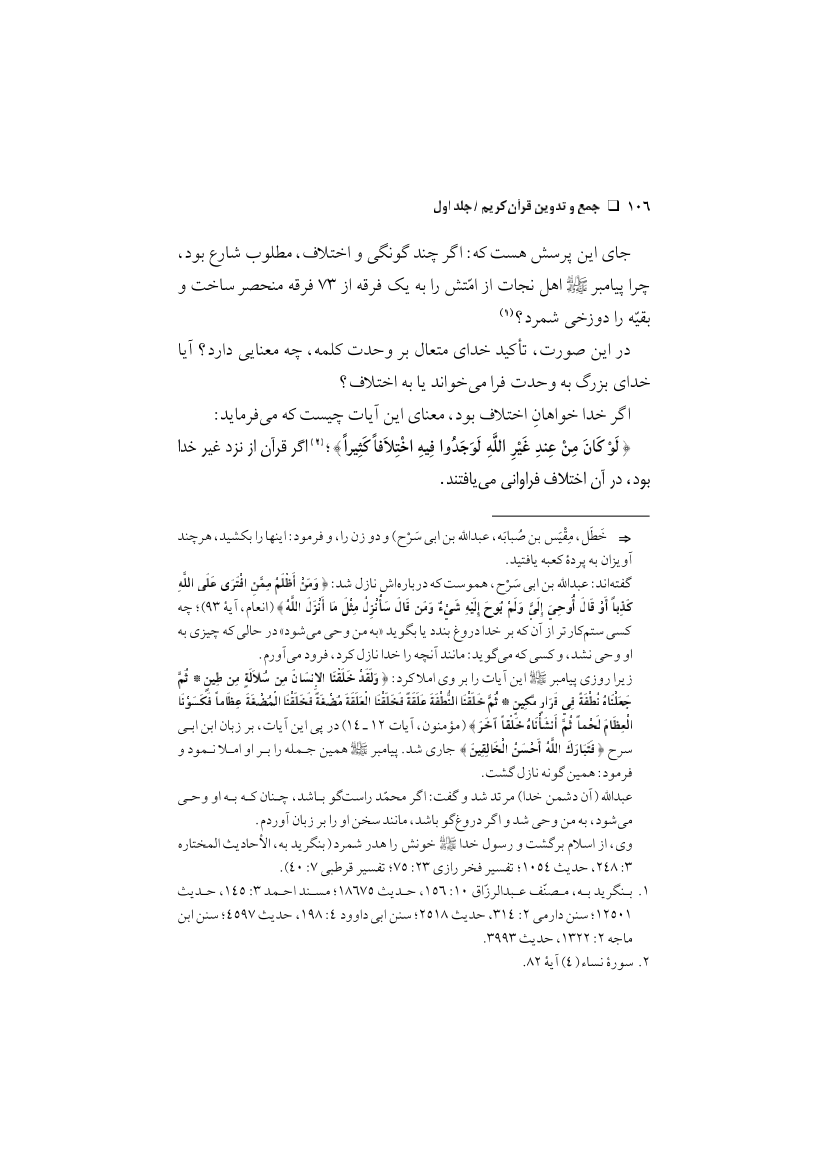 ۱۰۶ ❑ جمع و تدوین قرآن کریم / جلد اول
جای این پرسش هست که: اگر چند گونگی و اختلاف، مطلوب شارع بود،
چرا پیامبر ﷺ اهل نجات از امّتش را به یک فرقه از ۷۳ فرقه منحصر ساخت و
بقیّه را دوزخی شمرد؟(۱)
در این صورت، تأکید خدای متعال بر وحدت کلمه، چه معنایی دارد؟ آیا
خدای بزرگ به وحدت فرا می‌خواند یا به اختلاف؟
اگر خدا خواهانِ اختلاف بود، معنای این آیات چیست که می‌فرماید:
﴿لَوْ كَانَ مِنْ عِندِ غَيْرِ اللَّهِ لَوَجَدُوا فِيهِ اخْتِلَافاً كَثِيراً﴾؛(۲) اگر قرآن از نزد غیر خدا
بود، در آن اختلاف فراوانی می‌یافتند.
⇒ خَطَل، مِقْیَس بن صُبابَه، عبدالله بن ابی سَرْح) و دو زن را، و فرمود: اینها را بکشید، هرچند
آویزان به پردهٔ کعبه یافتید.
گفته‌اند: عبدالله بن ابی سَرْح، هموست که درباره‌اش نازل شد: ﴿وَمَنْ أَظْلَمُ مِمَّنِ افْتَرَى عَلَى اللَّهِ
كَذِباً أَوْ قَالَ أُوحِيَ إِلَيَّ وَلَمْ يُوحَ إِلَيْهِ شَيْءٌ وَمَن قَالَ سَأُنْزِلُ مِثْلَ مَا أَنْزَلَ اللَّهُ﴾ (انعام، آیهٔ ۹۳)؛ چه
کسی ستم‌کار تر از آن که بر خدا دروغ بندد یا بگوید «به من وحی می‌شود» در حالی که چیزی به
او وحی نشد، و کسی که می‌گوید: مانند آنچه را خدا نازل کرد، فرود می‌آورم.
زیرا روزی پیامبر ﷺ این آیات را بر وی املا کرد: ﴿وَلَقَدْ خَلَقْنَا الإِنسَانَ مِن سُلاَلَةٍ مِن طِينٍ * ثُمَّ
جَعَلْنَاهُ نُطْفَةً فِي قَرَارٍ مَّكِينٍ * ثُمَّ خَلَقْنَا النُّطْفَةَ عَلَقَةً فَخَلَقْنَا الْعَلَقَةَ مُضْغَةً فَخَلَقْنَا الْمُضْغَةَ عِظَاماً فَكَسَوْنَا
الْعِظَامَ لَحْماً ثُمَّ أَنشَأْنَاهُ خَلْقاً آخَرَ﴾ (مؤمنون، آیات ۱۲ ـ ۱۴) در پی این آیات، بر زبان ابن ابی
سرح ﴿فَتَبَارَكَ اللَّهُ أَحْسَنُ الْخَالِقِينَ﴾ جاری شد. پیامبر ﷺ همین جمله را بر او املا نمود و
فرمود: همین گونه نازل گشت.
عبدالله (آن دشمن خدا) مرتد شد و گفت: اگر محمّد راست‌گو باشد، چنان که به او وحی
می‌شود، به من وحی شد و اگر دروغ‌گو باشد، مانند سخن او را بر زبان آوردم.
وی، از اسلام برگشت و رسول خدا ﷺ خونش را هدر شمرد (بنگرید به، الأحادیث المختاره
۳: ۲۴۸، حدیث ۱۰۵۴؛ تفسیر فخر رازی ۲۳: ۷۵؛ تفسیر قرطبی ۷: ۴۰).
۱. بنگرید به، مصنّف عبدالرزّاق ۱۰: ۱۵۶، حدیث ۱۸۶۷۵؛ مسند احمد ۳: ۱۴۵، حدیث
۱۲۵۰۱؛ سنن دارمی ۲: ۳۱۴، حدیث ۲۵۱۸؛ سنن ابی داوود ۴: ۱۹۸، حدیث ۴۵۹۷؛ سنن ابن
ماجه ۲: ۱۳۲۲، حدیث ۳۹۹۳.
۲. سورهٔ نساء (۴) آیهٔ ۸۲.